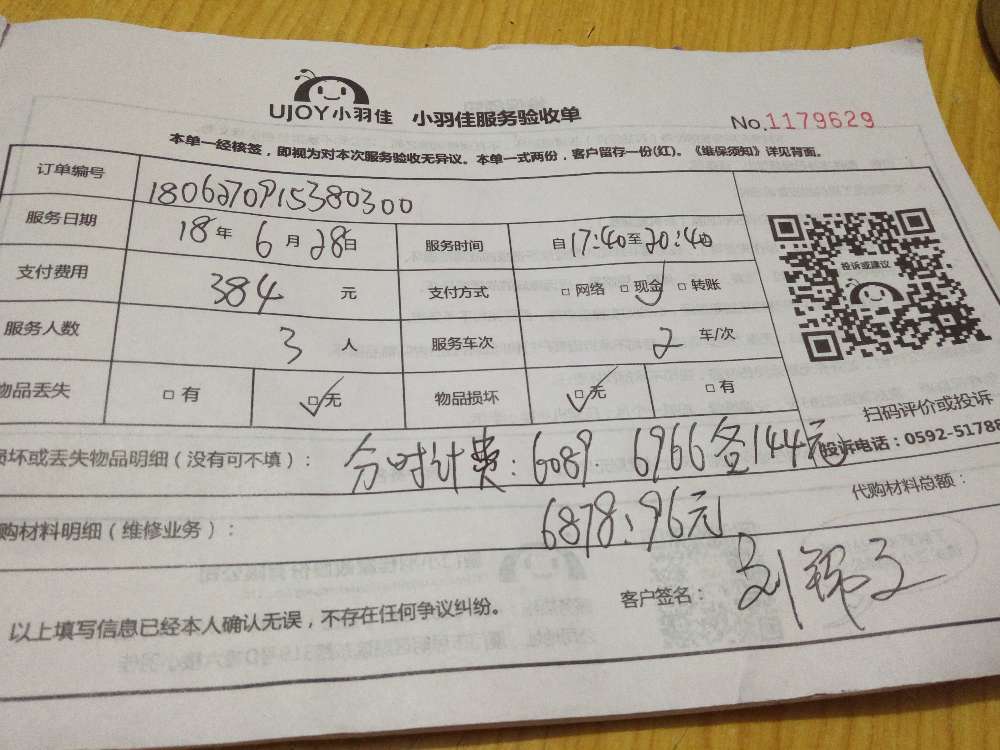 UJOY小羽佳 小羽佳服务验收单 No.1179629
本单一经核签，即视为对本次服务验收无异议。本单一式两份，客户留存一份(红)。《维保须知》详见背面。
订单编号 18062709153380300
服务日期 18年 6月 28日 服务时间 自17:40至20:40
支付费用 384 元 支付方式 □网络 □现金 □转账
投诉或建议
服务人数 3 人 服务车次 2 车/次
物品丢失 □有 □无 物品损坏 □无 □有
扫码评价或投诉
投诉电话：0592-51788
损坏或丢失物品明细（没有可不填）： 分时计费：6089. 6966各144元
6878：96元
购材料明细（维修业务）： 代购材料总额：
以上填写信息已经本人确认无误，不存在任何争议纠纷。 客户签名：